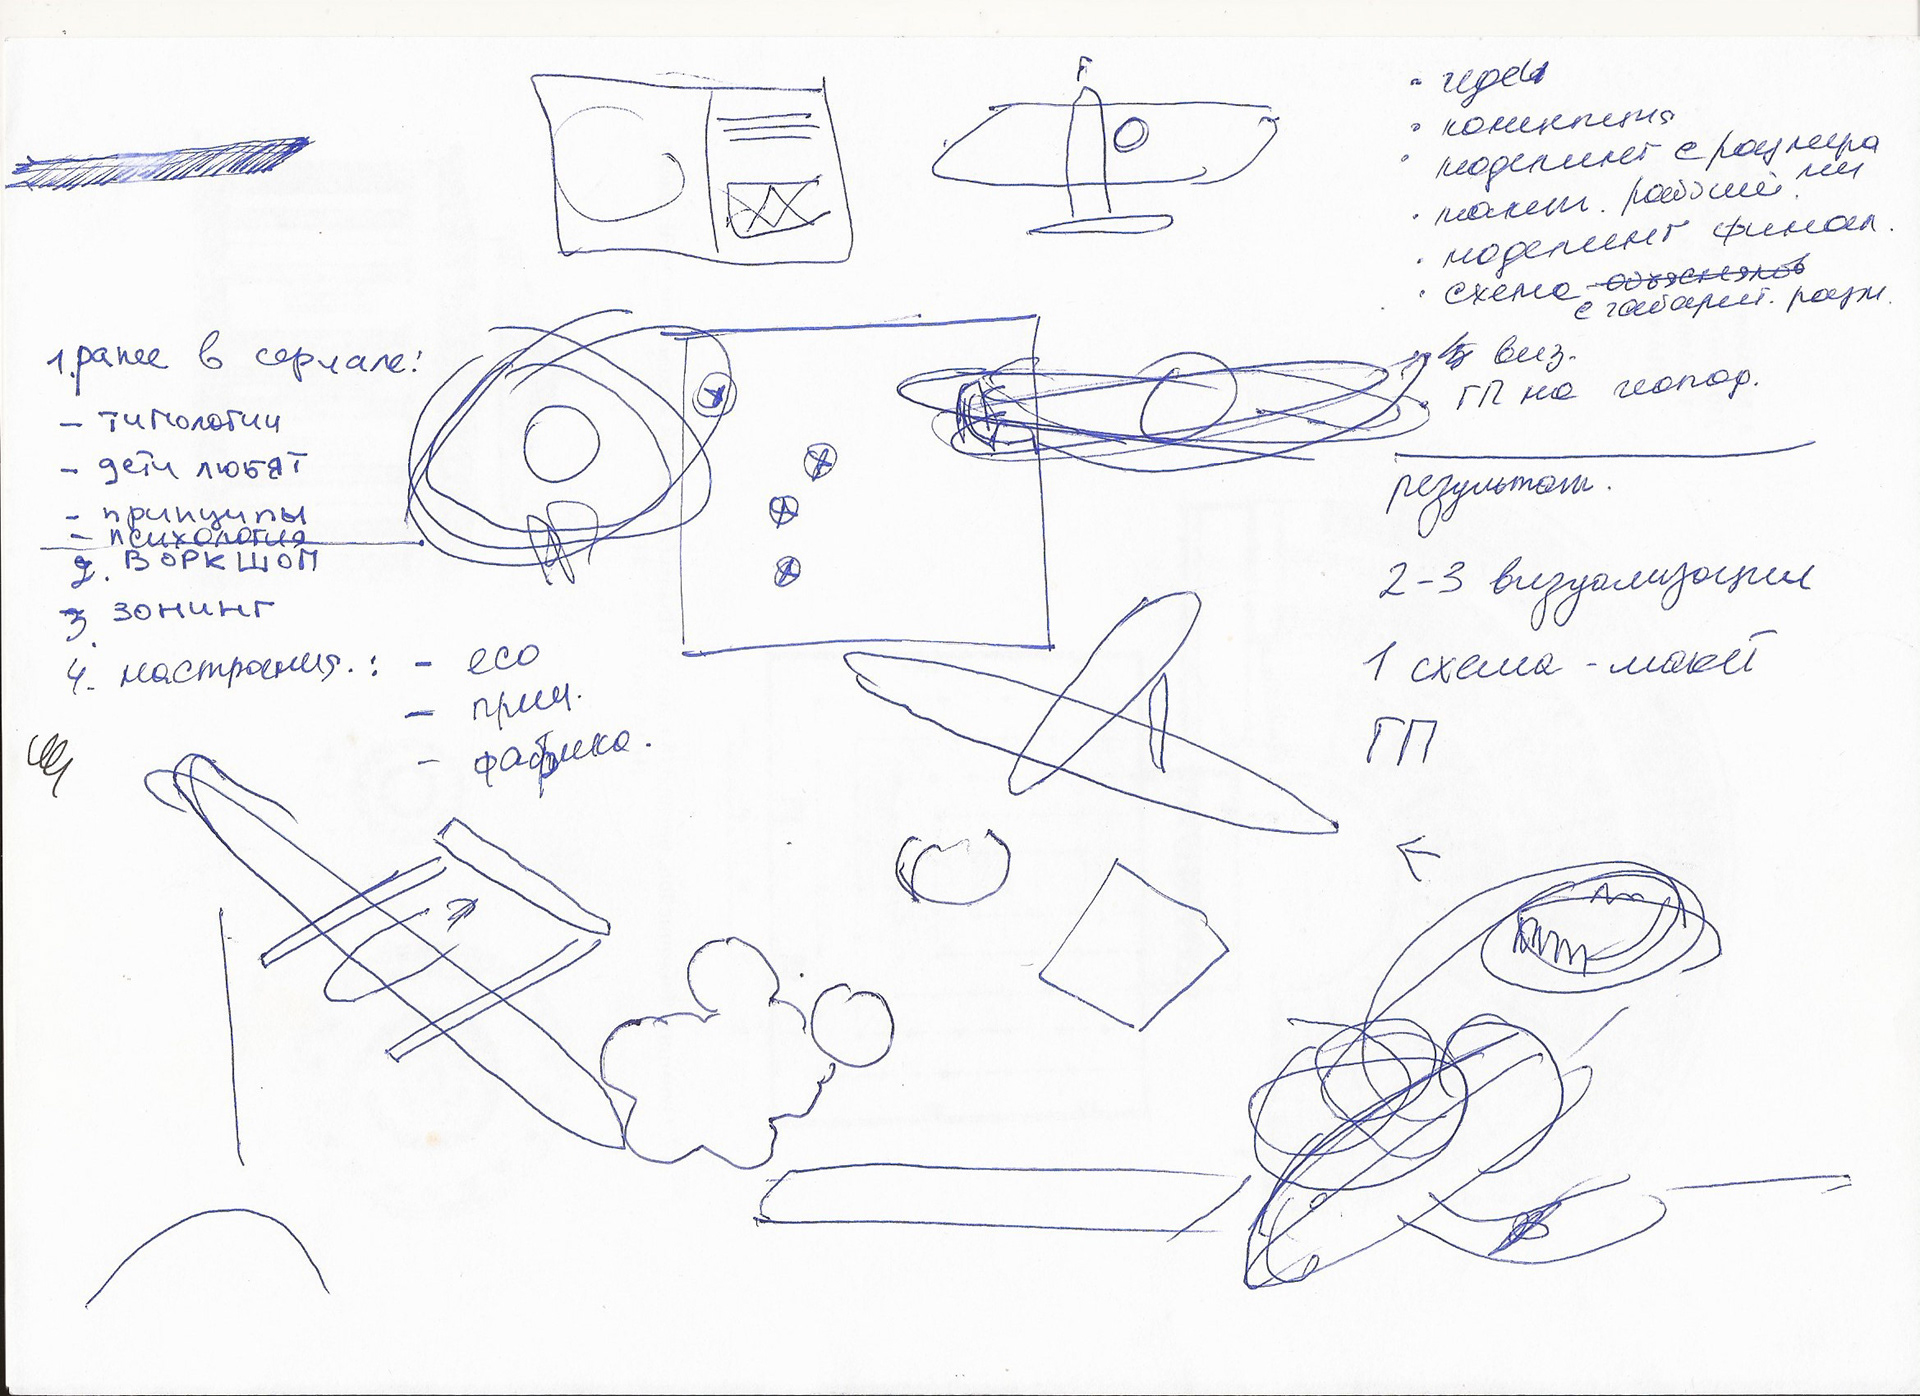 1. ранее в сериале:
- типологии
- дети любят
- принципы
- психология
2. воркшоп
3. зонинг
4. настроения.: - eco
- приц.
- фабрика.
• идеи
• концепция
• моделинг с размера
ми
• макет. рабочий.
• моделинг финал.
• схема объясняюв
с габарит. разм.
5 виз.
ГП на геопод.
результат.
2-3 визуализации
1 схема - макет
ГП